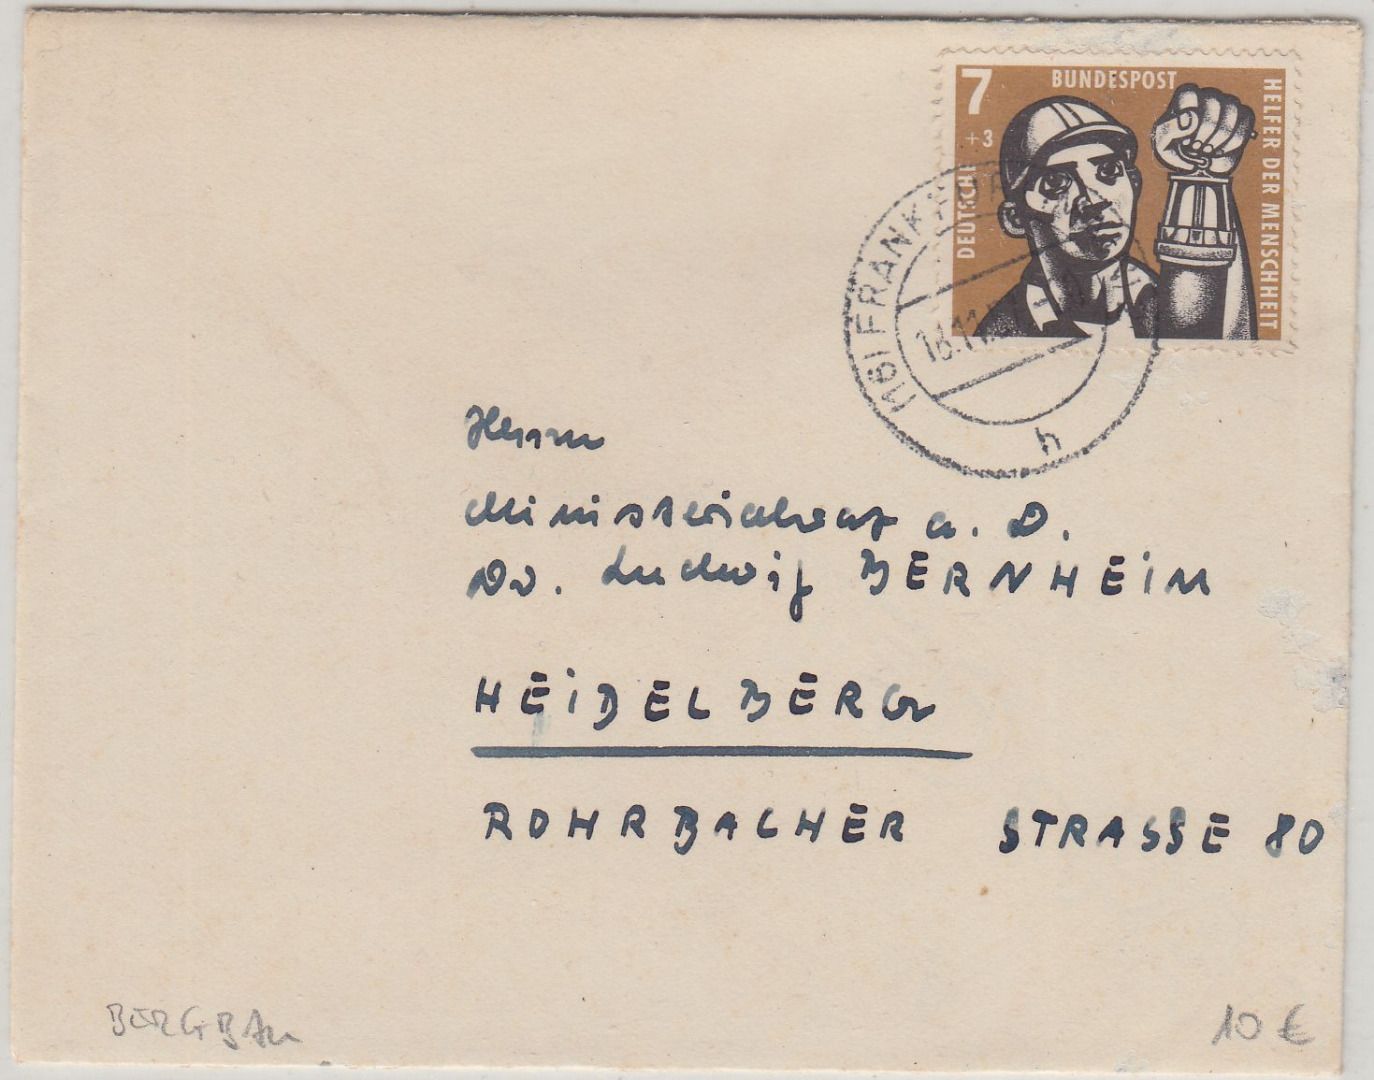 7
+3
DEUTSCHE
BUNDESPOST
HELFER DER MENSCHHEIT
(16) FRANKFURT
18.11.
h
Herrn
Ministerialrat a. D.
Dr. Ludwig BERNHEIM
HEIDELBERG
ROHRBACHER STRASSE 80
BERGBAU
10 €